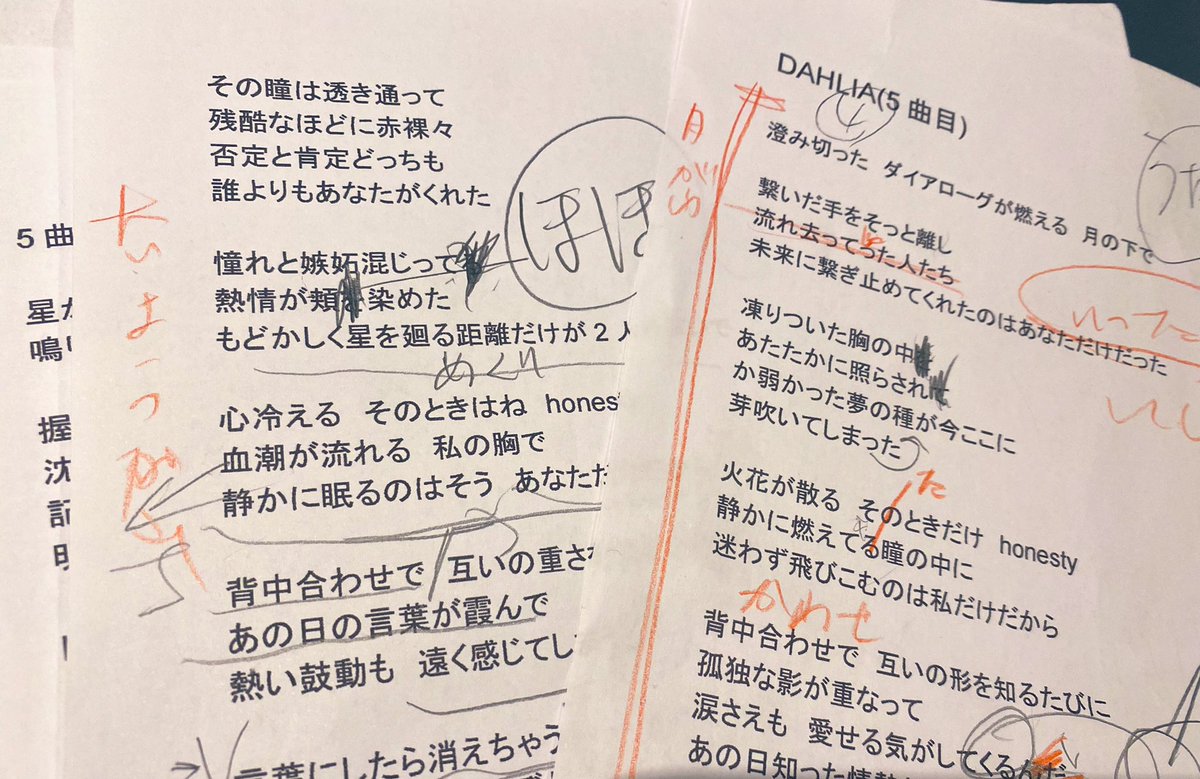 5曲
星
鳴
握
沈
記
その瞳は透き通って
残酷なほどに赤裸々
否定と肯定どっちも
誰よりもあなたがくれた
憧れと嫉妬混じって
熱情が頬 染めた
もどかしく星を廻る距離だけが2人
めぐり
心冷える そのときはね honest
血潮が流れる 私の胸で
静かに眠るのはそう あなただ
背中合わせで 互いの重さ
あの日の言葉が霞んで
熱い鼓動も 遠く感じてし
言葉にしたら消えちゃう
たいようがわ
DAHLIA(5曲目)
4
澄み切った ダイアローグが燃える 月の下で
繋いだ手をそっと離し
流れ去ってった人たち
未来に繋ぎ止めてくれたのはあなただけだった
凍りついた胸の中
あたたかに照らされて
か弱かった夢の種が今ここに
芽吹いてしまった
火花が散る そのときだけ honesty
た
静かに燃えてる瞳の中に
迷わず飛びこむのは私だけだから
かわせ
背中合わせで 互いの形を知るたびに
孤独な影が重なって
涙さえも 愛せる気がしてくる
あの日知った情熱
月がわ
いった